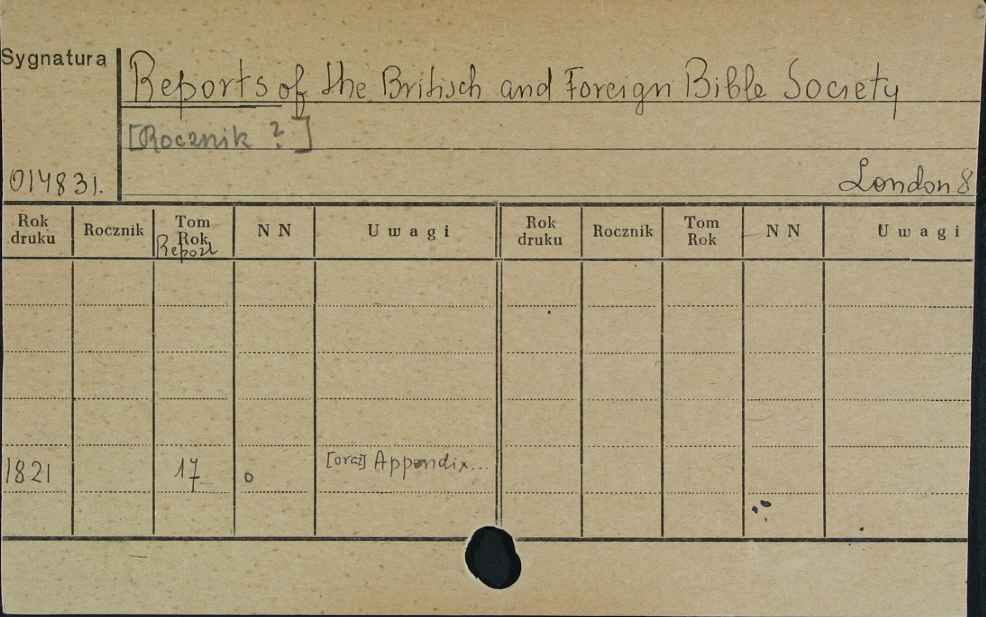 Sygnatura
Reports of the Britisch and Foreign Bible Society
[Rocznik ?]
014831.
London 8
Rok druku Rocznik Tom Rok N N Uwagi Rok druku Rocznik Tom Rok N N Uwagi
Report
1821 17 o [oraz] Appendix...